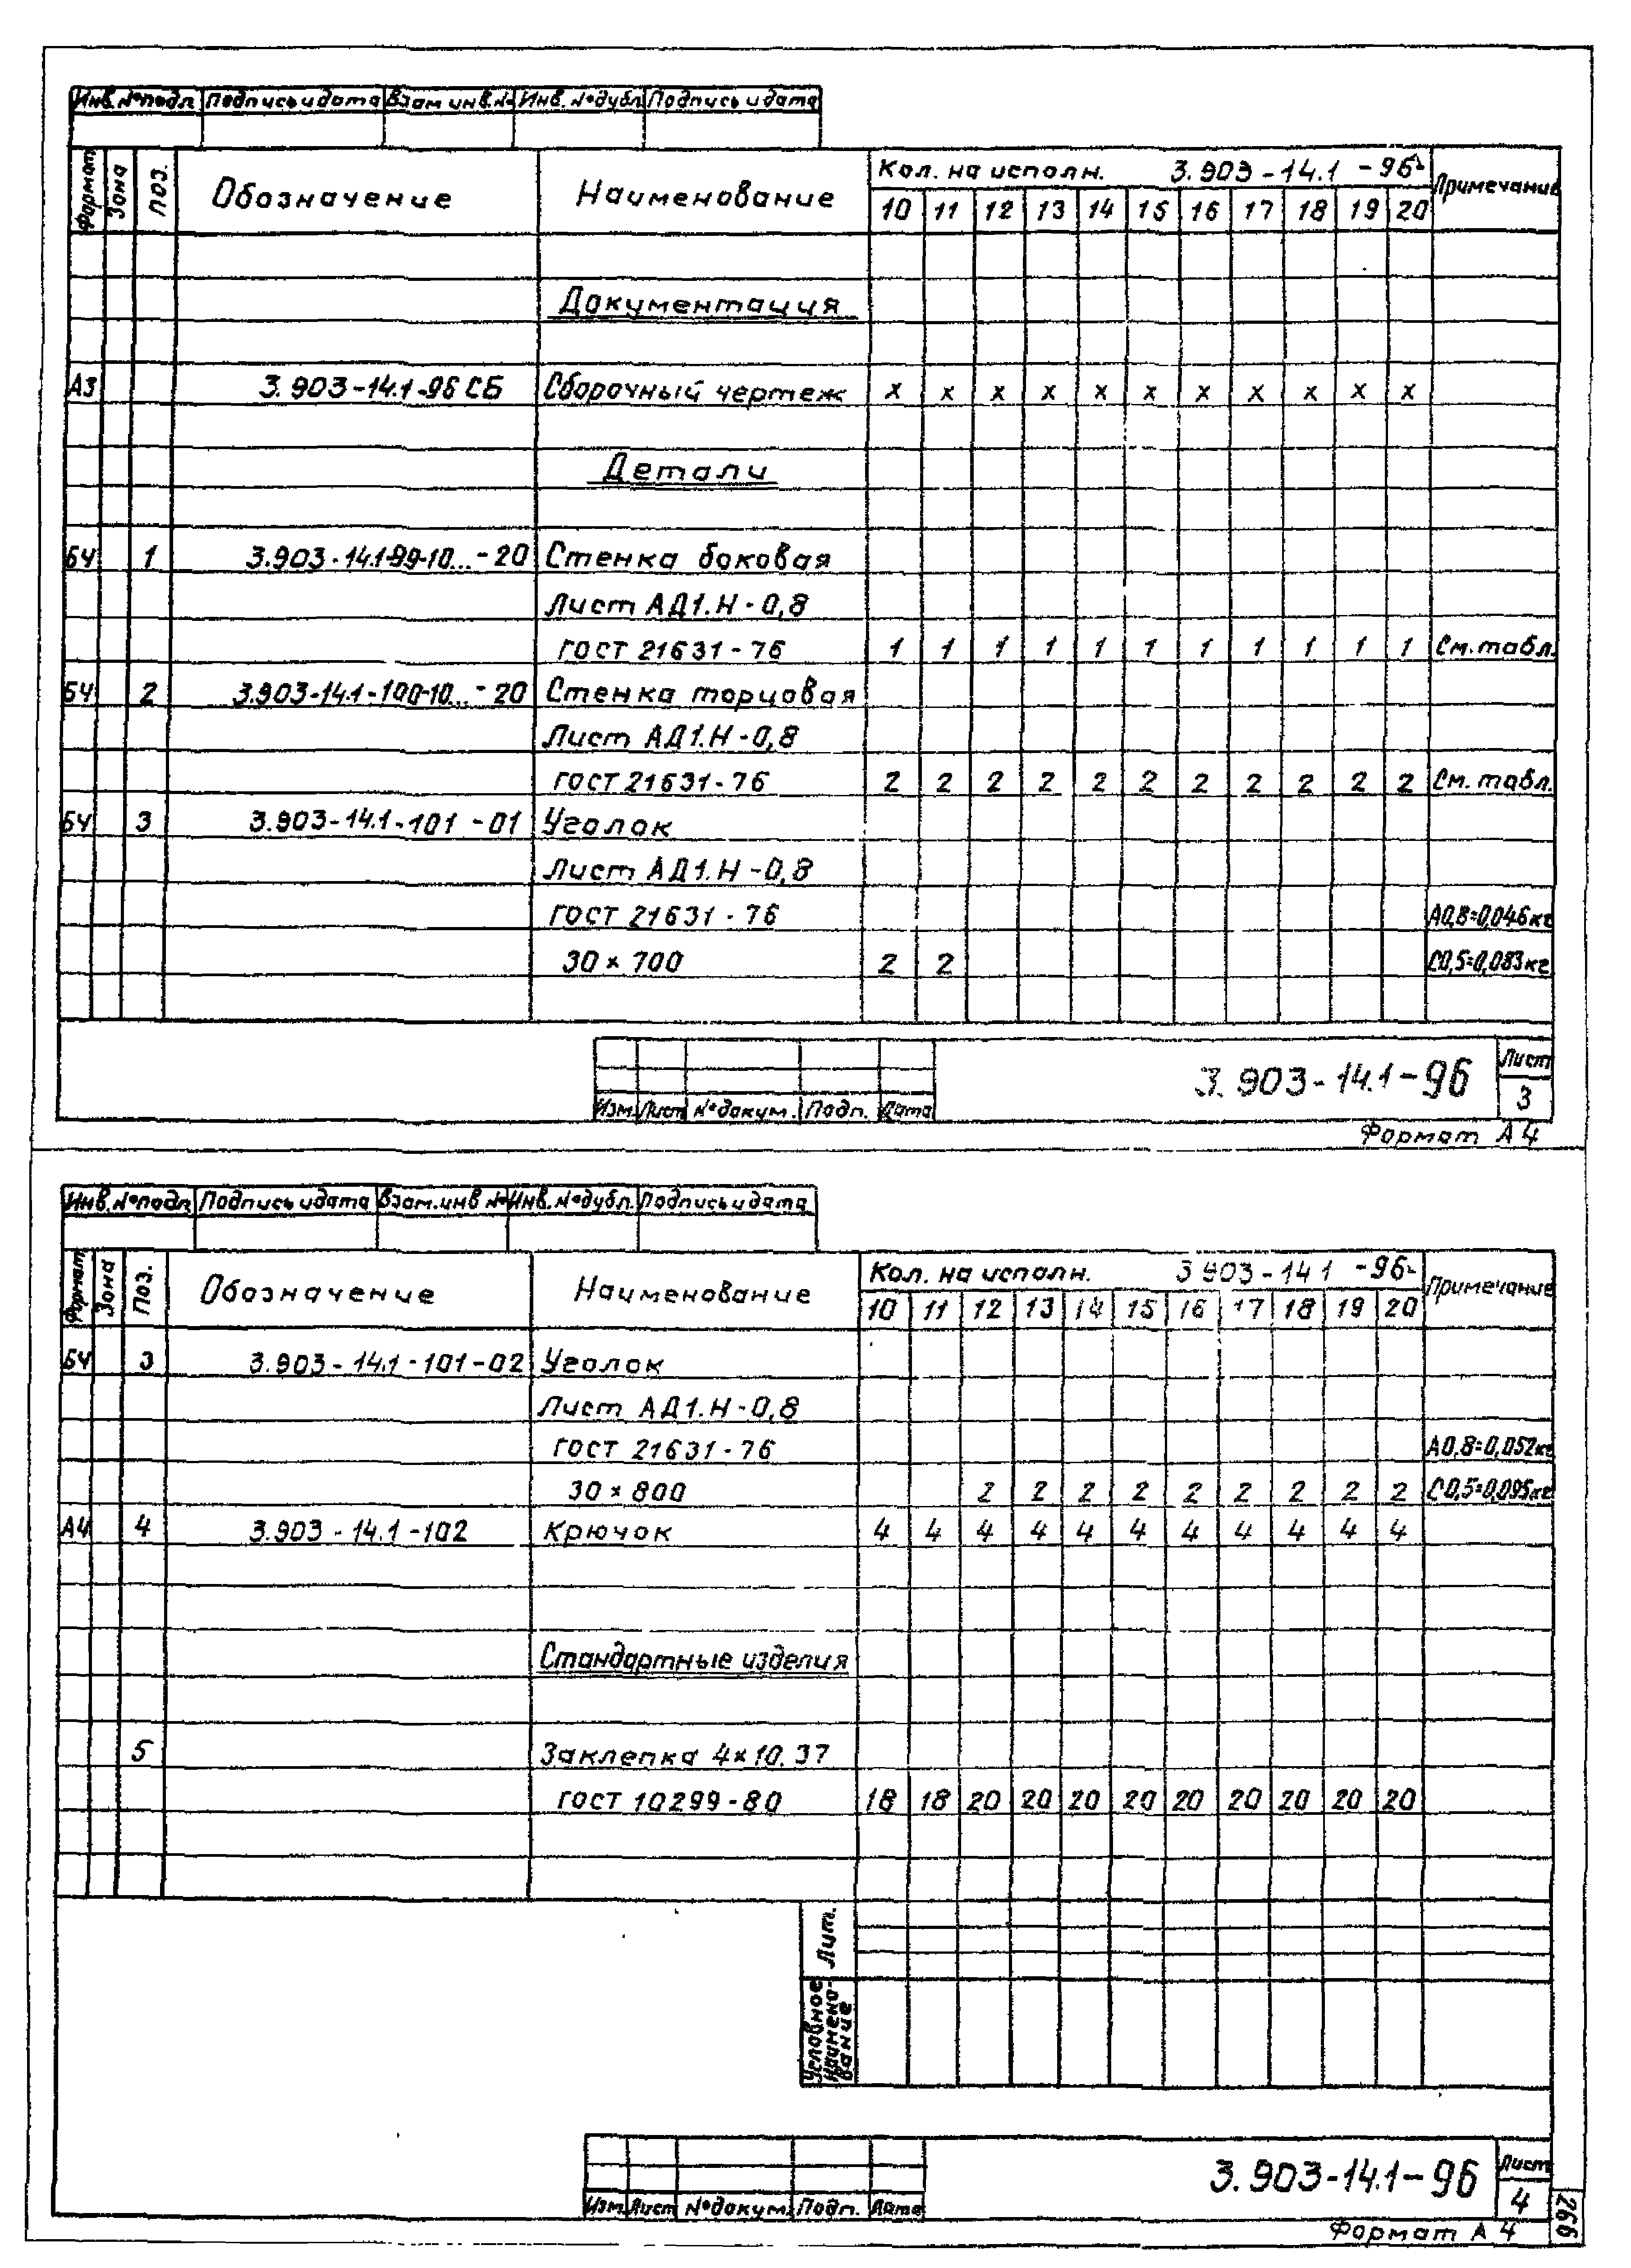 Инв.№подл. Подпись и дата Взам инв.№ Инв.№дубл. Подпись и дата
Формат Зона Поз. Обозначение Наименование Кол. на исполн. 3.903-14.1 -96- Примечание
10 11 12 13 14 15 16 17 18 19 20
Документация
А3 3.903-14.1-96 СБ Сборочный чертеж х х х х х х х х х х х
Детали
БЧ 1 3.903-14.1-99-10...-20 Стенка боковая
Лист АД1.Н-0,8
ГОСТ 21631-76 1 1 1 1 1 1 1 1 1 1 1 См. табл.
БЧ 2 3.903-14.1-100-10...-20 Стенка торцовая
Лист АД1.Н-0,8
ГОСТ 21631-76 2 2 2 2 2 2 2 2 2 2 2 См. табл.
БЧ 3 3.903-14.1-101-01 Уголок
Лист АД1.Н-0,8
ГОСТ 21631-76 А0,8=0,046кг
30×700 2 2 С0,5=0,083кг
3.903-14.1-96 Лист
3
Изм. Лист №докум. Подп. Дата
Формат А4
Инв.№подл. Подпись и дата Взам.инв № Инв.№дубл. Подпись и дата
Формат Зона Поз. Обозначение Наименование Кол. на исполн. 3 903-14 1 -96- Примечание
10 11 12 13 14 15 16 17 18 19 20
БЧ 3 3.903-14.1-101-02 Уголок
Лист АД1.Н-0,8
ГОСТ 21631-76 А0,8=0,052кг
30×800 2 2 2 2 2 2 2 2 2 С0,5=0,095кг
А4 4 3.903-14.1-102 Крючок 4 4 4 4 4 4 4 4 4 4 4
Стандартные изделия
5 Заклепка 4×10.37
ГОСТ 10299-80 18 18 20 20 20 20 20 20 20 20 20
Лит.
Условное
наимено-
вание
3.903-14.1-96 Лист
4
Изм. Лист №докум. Подп. Дата
Формат А4